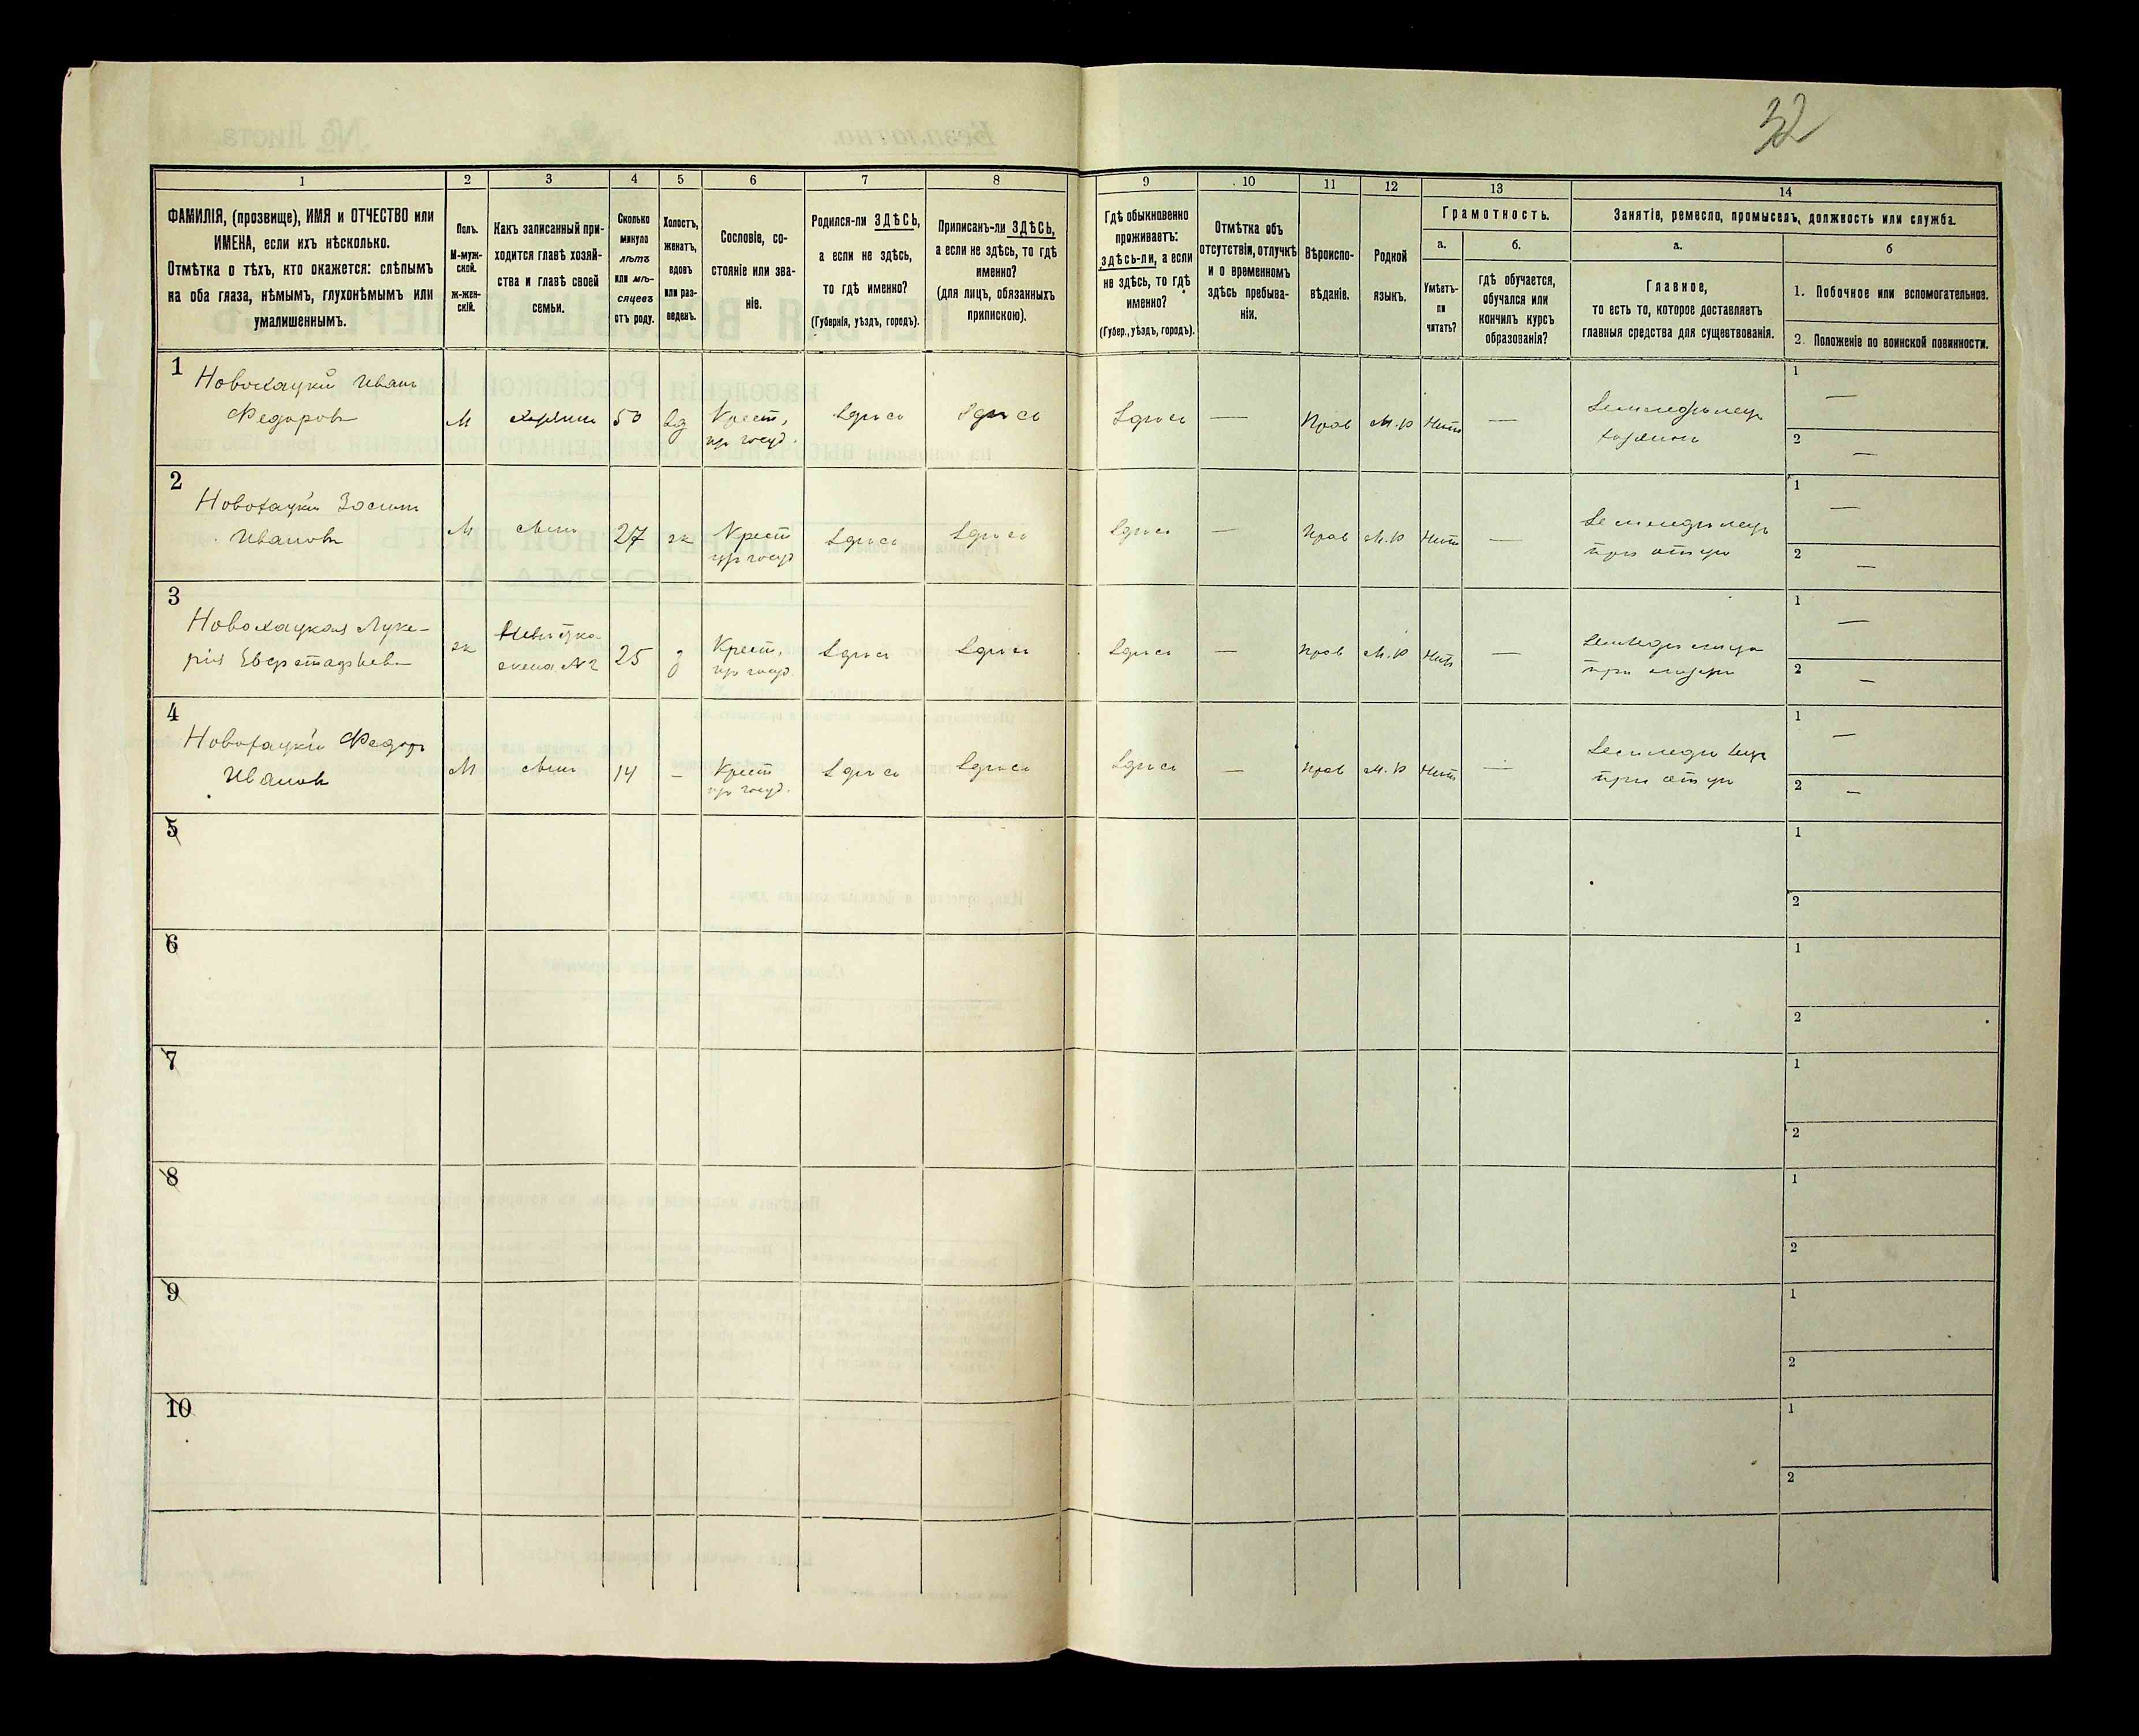 32
1 2 3 4 5 6 7 8 9 10 11 12 13 14
ФАМИЛІЯ, (прозвище), ИМЯ и ОТЧЕСТВО или
ИМЕНА, если ихъ нѣсколько.
Отмѣтка о тѣхъ, кто окажется: слѣпымъ
на оба глаза, нѣмымъ, глухонѣмымъ или
умалишеннымъ.
Полъ.
М-муж-
ской.
ж-жен-
скій.
Какъ записанный при-
ходится главѣ хозяй-
ства и главѣ своей
семьи.
Сколько
минуло
лѣтъ
или мѣ-
сяцевъ
отъ роду.
Холостъ,
женатъ,
вдовъ
или раз-
веденъ.
Сословіе, со-
стояніе или зва-
ніе.
Родился-ли ЗДѢСЬ,
а если не здѣсь,
то гдѣ именно?
(Губернія, уѣздъ, городъ).
Приписанъ-ли ЗДѢСЬ,
а если не здѣсь, то гдѣ
именно?
(для лицъ, обязанныхъ
припискою).
Гдѣ обыкновенно
проживаетъ:
здѣсь-ли, а если
не здѣсь, то гдѣ
именно?
(Губер., уѣздъ, городъ).
Отмѣтка объ
отсутствіи, отлучкѣ
и о временномъ
здѣсь пребыва-
ніи.
Вѣроиспо-
вѣданіе.
Родной
языкъ.
Грамотность.
а.
Умѣетъ-
ли
читать?
б.
гдѣ обучается,
обучался или
кончилъ курсъ
образованія?
Занятіе, ремесло, промыселъ, должность или служба.
а.
Главное,
то есть то, которое доставляетъ
главныя средства для существованія.
б
1. Побочное или вспомогательное.
2. Положеніе по воинской повинности.
1 Новохацкій Иванъ
Федоровъ М хозяинъ 50 вд Крест, Здѣсь Здѣсь Здѣсь — Прав М.р Нѣтъ — Земледѣлецъ 1 —
изъ госуд. хозяинъ 2 —
2 Новохацкій Зосимъ
Ивановъ М сынъ 27 ж Крест Здѣсь Здѣсь Здѣсь — Прав М.р Нѣтъ — Земледѣлецъ 1 —
изъ госуд при отцѣ 2 —
3 Новохацкая Луке-
рія ж Невѣстка 25 з Крест, Здѣсь Здѣсь Здѣсь — Прав М.р Нѣтъ — 1 —
жена №2 изъ госуд. при 2 —
4 Новохацкій Федоръ
Ивановъ М сынъ 14 — Крест Здѣсь Здѣсь Здѣсь — Прав М.р Нѣтъ — Земледѣлецъ 1 —
изъ госуд. при отцѣ 2 —
5 1
2
6 1
2
7 1
2
8 1
2
9 1
2
10 1
2